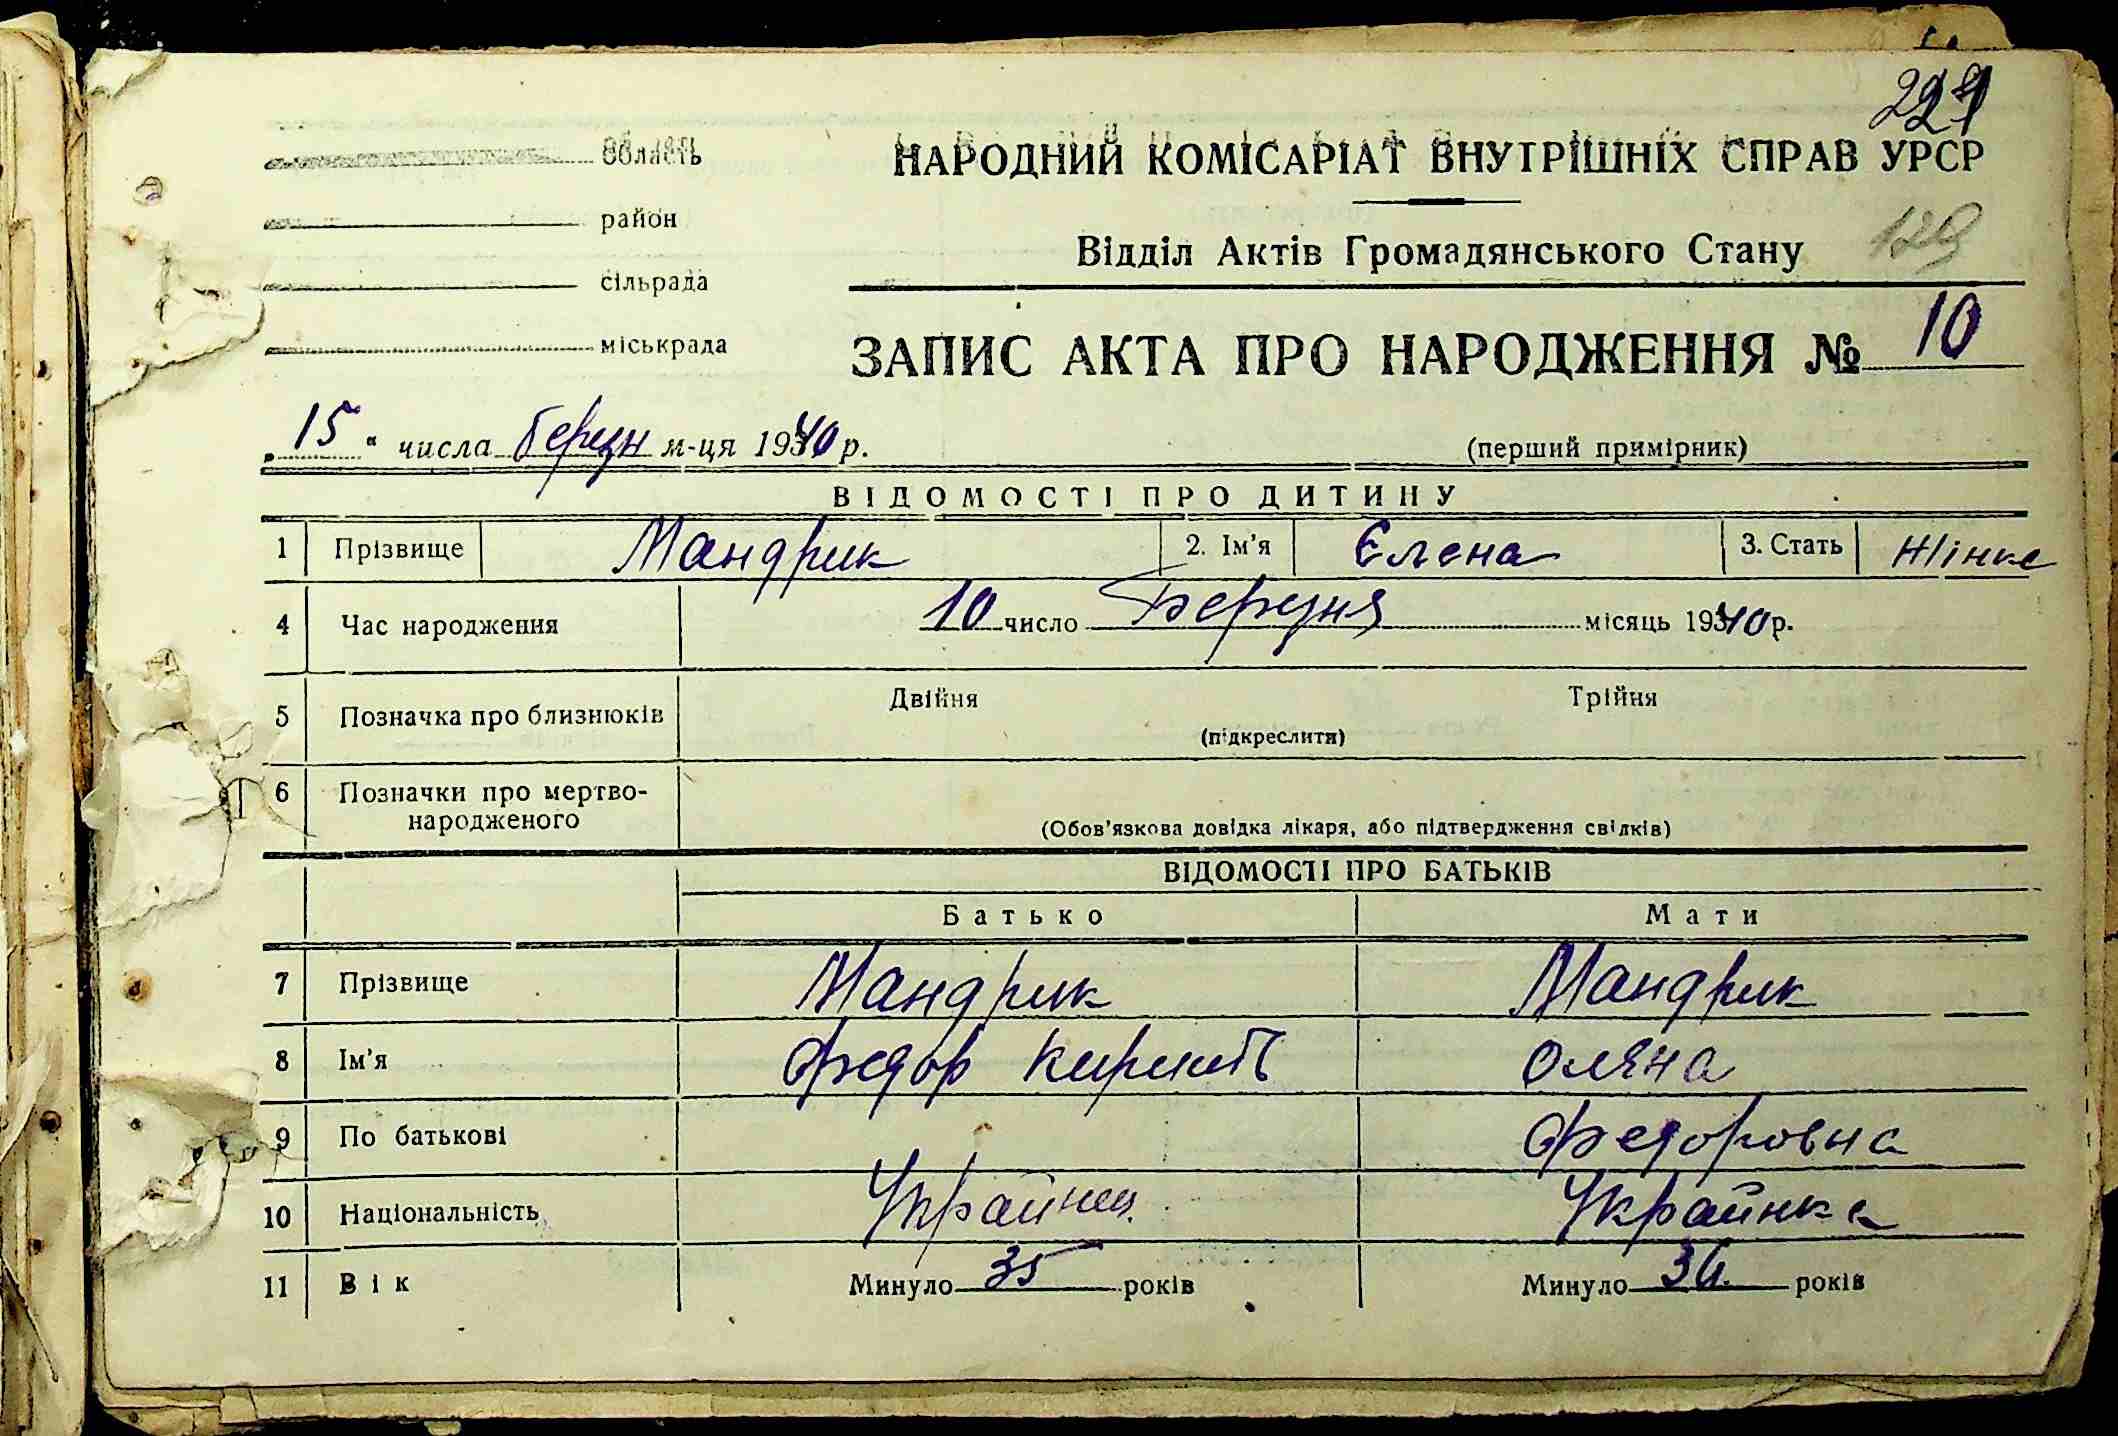 область НАРОДНИЙ КОМІСАРІАТ ВНУТРІШНІХ СПРАВ УРСР
район
Відділ Актів Громадянського Стану 129
сільрада
міськрада
ЗАПИС АКТА ПРО НАРОДЖЕННЯ № 10
„15“ числа березн м-ця 1940 р.
(перший примірник)
ВІДОМОСТІ ПРО ДИТИНУ
1 Прізвище Мандрик 2. Ім'я Єлена 3. Стать Жінка
4 Час народження 10 число Березня місяць 1940 р.
5 Позначка про близнюків Двійня Трійня
(підкреслити)
6 Позначки про мертво-
народженого
(Обов'язкова довідка лікаря, або підтвердження свідків)
ВІДОМОСТІ ПРО БАТЬКІВ
Батько Мати
7 Прізвище Мандрик Мандрик
8 Ім'я Федор Олена
9 По батькові Федоровна
10 Національність Украйнец Украйнка
11 Вік Минуло 35 років Минуло років